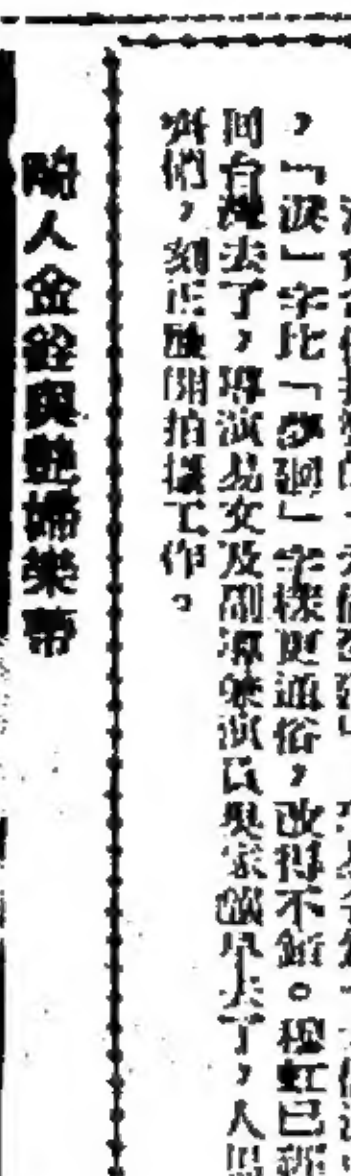 ，「淚」字比「夢迴」字樣更通俗，改得不錯。穆虹已
回台灣去了，導演易文及副導兼演員吳家驤早去了，人
，刻正開拍攝工作。
人金銓與艷婦樂蒂